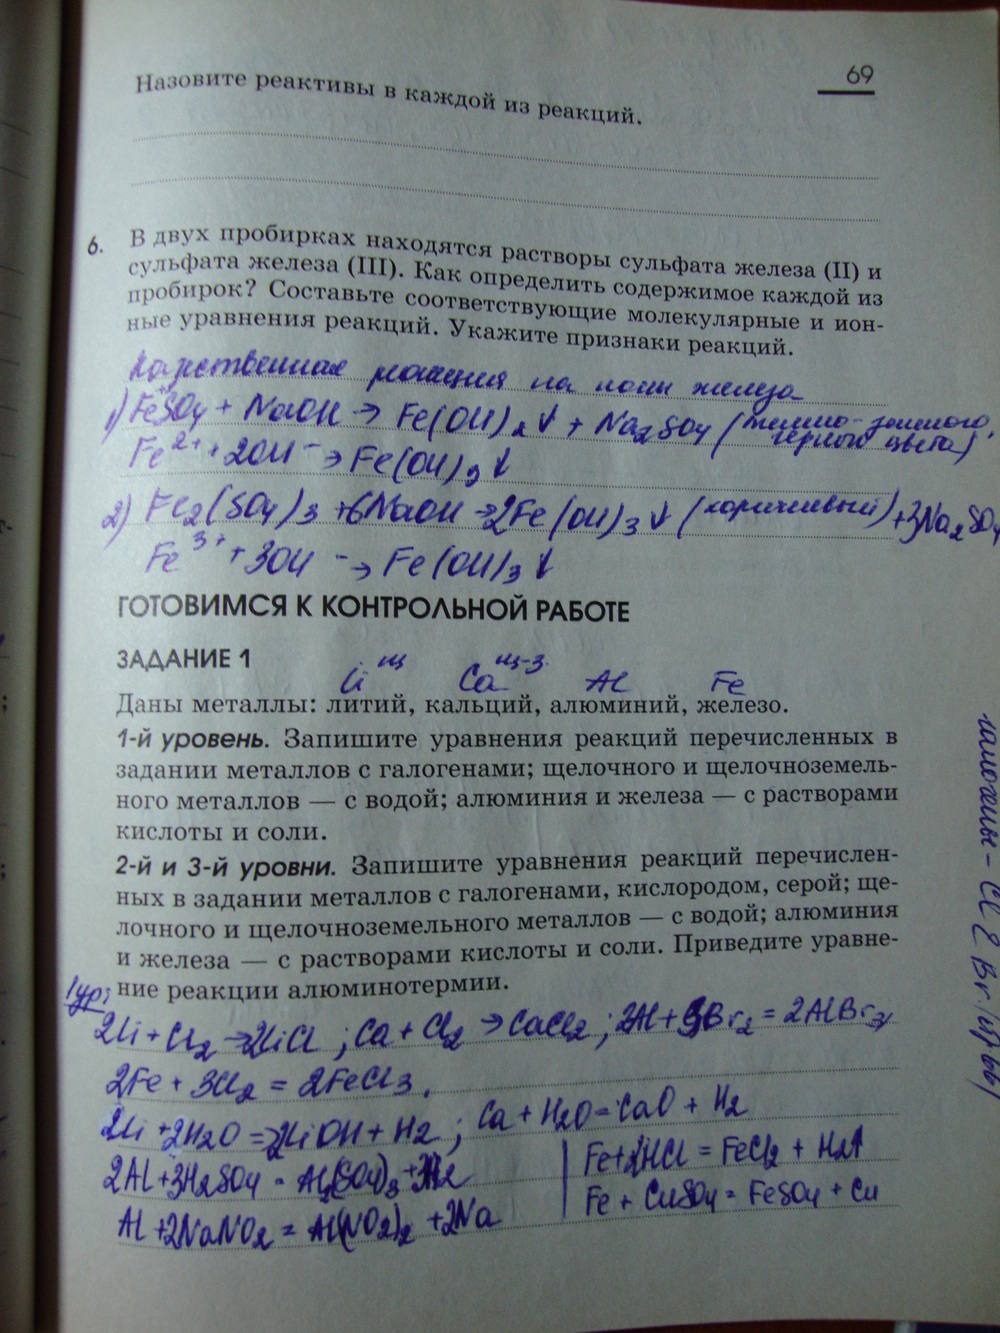 69
Назовите реактивы в каждой из реакций.
6. В двух пробирках находятся растворы сульфата железа (II) и
сульфата железа (III). Как определить содержимое каждой из
пробирок? Составьте соответствующие молекулярные и ион-
ные уравнения реакций. Укажите признаки реакций.
реакция на ионы железа
1) FeSO4 + NaOH → Fe(OH)2↓ + Na2SO4 (темно-зеленого,
черного цвета)
Fe2+ + 2OH- → Fe(OH)2↓
2) Fe2(SO4)3 + 6NaOH → 2Fe(OH)3↓ (коричневый) + 3Na2SO4
Fe3+ + 3OH- → Fe(OH)3↓
ГОТОВИМСЯ К КОНТРОЛЬНОЙ РАБОТЕ
ЗАДАНИЕ 1
Li щ Ca щ-з Al Fe
Даны металлы: литий, кальций, алюминий, железо.
1-й уровень. Запишите уравнения реакций перечисленных в
задании металлов с галогенами; щелочного и щелочноземель-
ного металлов — с водой; алюминия и железа — с растворами
кислоты и соли.
2-й и 3-й уровни. Запишите уравнения реакций перечислен-
ных в задании металлов с галогенами, кислородом, серой; ще-
лочного и щелочноземельного металлов — с водой; алюминия
и железа — с растворами кислоты и соли. Приведите уравне-
ние реакции алюминотермии.
1ур:
2Li + Cl2 → 2LiCl ; Ca + Cl2 → CaCl2 ; 2Al + 3Br2 = 2AlBr3
2Fe + 3Cl2 = 2FeCl3.
2Li + 2H2O = 2LiOH + H2 ; Ca + H2O = CaO + H2
2Al + 3H2SO4 = Al2(SO4)3 + 3H2
Fe + 2HCl = FeCl2 + H2↑
Al + 2NaNO2 = Al(NO2)2 + 2Na
Fe + CuSO4 = FeSO4 + Cu